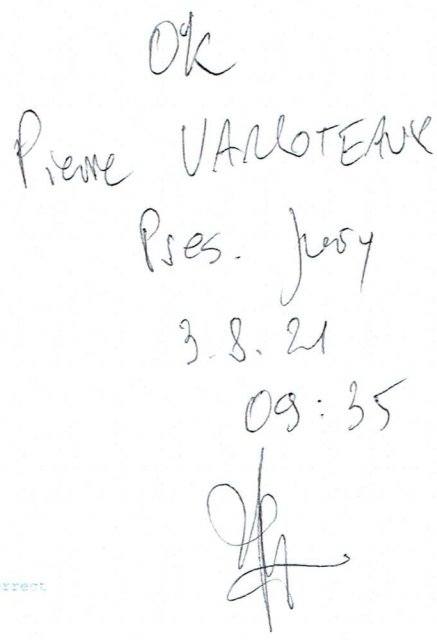 OK
Pierre VARLOTEAUX
Pres. Jury
3.8.21
09:35
rrect